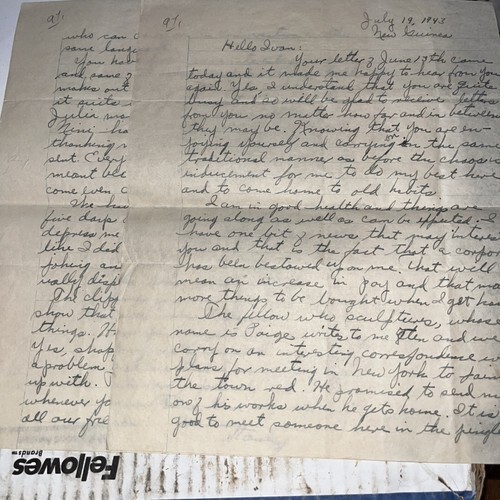 a/1
who can
same langu
You ha
and, some
makes out
it suits
Julia ma
Nini ha
thanking
slut. Every
meant
come even
The hea
five days
depress me
like I did
joking an
ually disp
The clipp
show that
things. H
Yes, shop
a problem
up with.
whenever yo
all our fre
a/1
July 19, 1943
New Guinea
Hello Ivan:
Your letter of June 17th came
today and it made me happy to hear from you
again. Yes, I understand that you are quite
busy and so will be glad to receive letters
from you no matter how far and in between
they may be. Knowing that you are en-
joying yourself and carrying on in the same
traditional manner as before the chaos is
inducement for me to do my best here
and to come home to old habits.
I am in good health and things are
going along as well as can be expected. I
have one bit of news that may interes
you and that is the fact that a corpor
has been bestowed upon me. That will
mean an increase in pay and that mea
more things to be bought when I get ho
The fellow who sculptures, whose
name is Paige writes to me often and we
carry on an interesting correspondence w
plans for meeting in New York to pain
the town red. He promised to send me
one of his works when he gets home. It is
good to meet someone here in the jungle
Fellowes
Brands